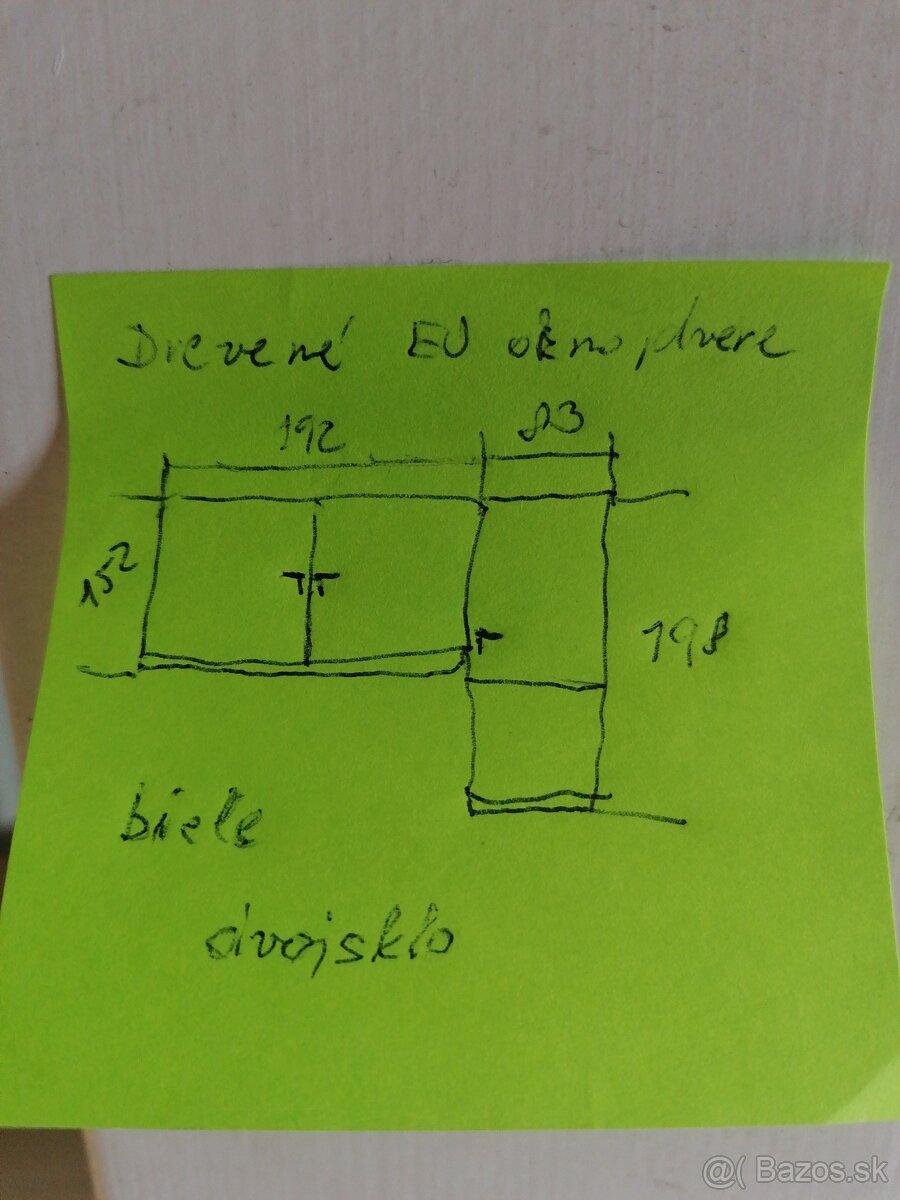 Drevené EU okno, dvere
192 83
152
198
biele
dvojsklo
@( Bazos.sk